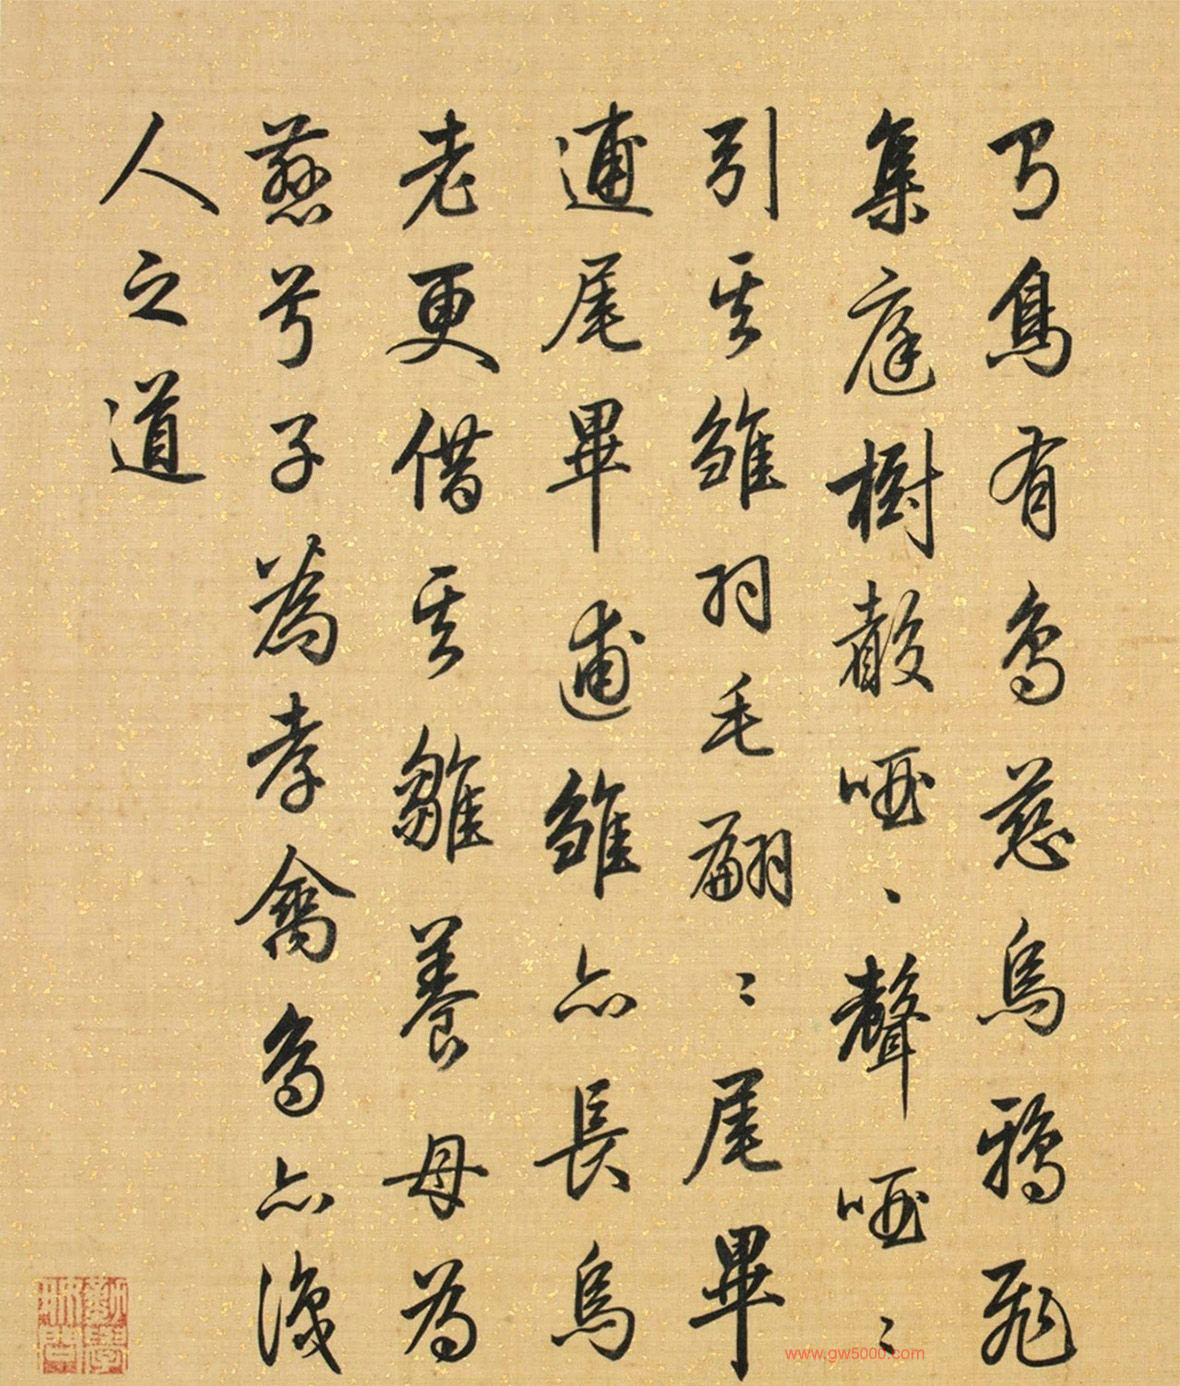 有鳥有鳥慈烏鴉飛
集庭樹聲啞〻聲啞〻
引其雛羽毛翩〻尾畢
逋尾畢逋雛亦長烏
老更借其雛養母為
慈兮子為孝禽鳥亦識
人之道
www.gw5000.com